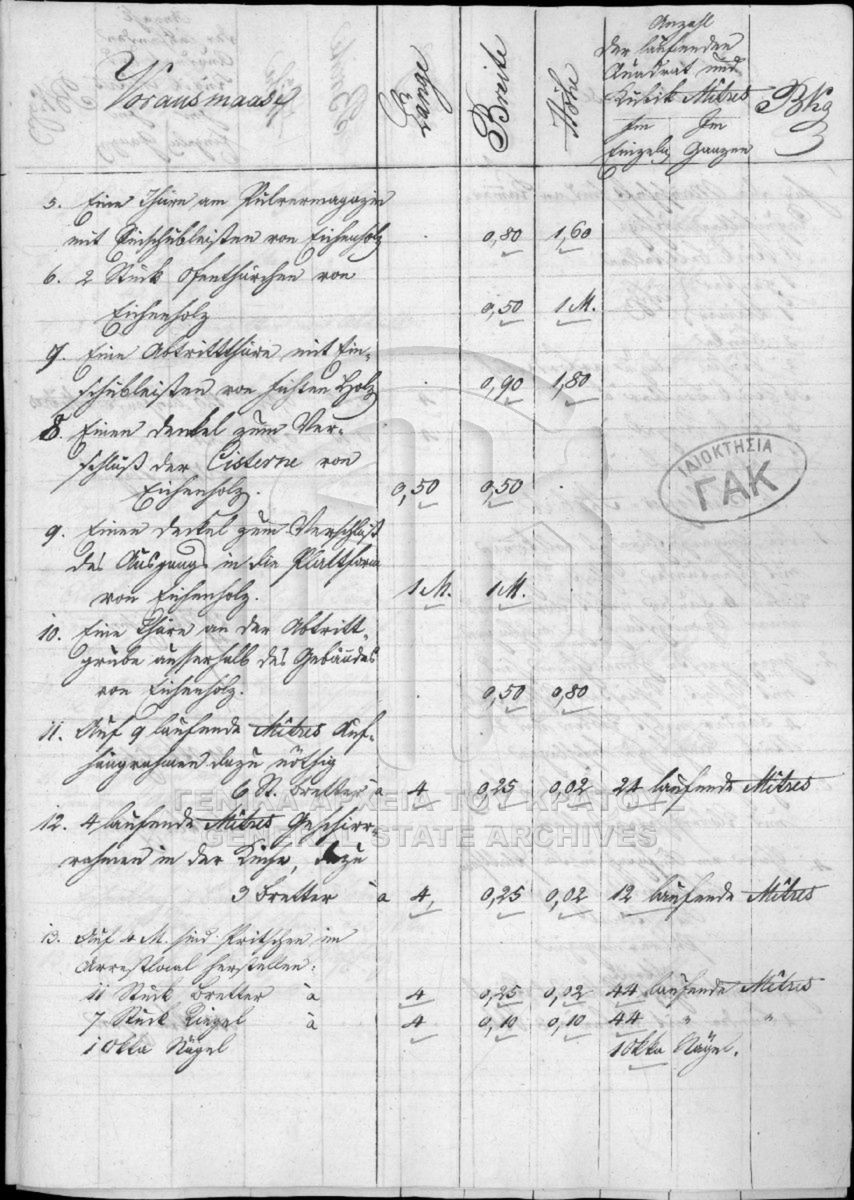 Vorausmaase
Länge
Breite
Höhe
Anzahl
der laufenden
Quadrat und
Kubik Mêtres
Im Im
Einzeln Ganzen
Bkg
5. Eine Thüre am Pulvermagazin
mit Einschubleisten von Eichenholz 0,80 1,60
6. 2 Stück Ofenthürchen von
Eichenholz 0,50 1 M.
7. Eine Abtrittthüre mit Ein-
schubleisten von Fichten Holz 0,90 1,80
8. Einen Deckel zum Ver-
schluß der Cisterne von
Eichenholz. 0,50 0,50
9. Einen Deckel zum Verschluß
des Ausgangs in die Plattform
von Eichenholz. 1 M. 1 M.
10. Eine Thüre an der Abtritt-
grube ausserhalb des Gebäudes
von Eichenholz. 0,50 0,80
11. Auf 9 laufende Mêtres Auf-
hängrahmen dazu nöthig
6 St. Bretter à 4 0,25 0,02 24 laufende Mêtres
12. 4 laufende Mêtres Geschirr-
rahmen in der Küche, dazu
3 Bretter à 4, 0,25 0,02 12 laufende Mêtres
13. Auf 4 M. sind Pritschen im
Arrestlocal herstellen:
11 Stück Bretter à 4 0,25 0,02 44 laufende Mêtres
7 Stück Riegel à 4 0,10 0,10 44 " "
1 Okka Nägel 1 Okka Nägel.
ΙΔΙΟΚΤΗΣΙΑ
ΓΑΚ
ΓΕΝΙΚΑ ΑΡΧΕΙΑ ΤΟΥ ΚΡΑΤΟΥΣ
GENERAL STATE ARCHIVES